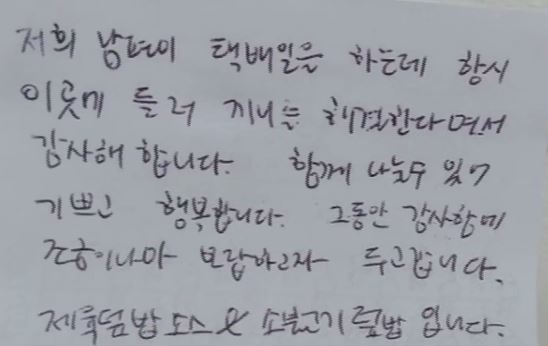 저희 남편이 택배일을 하는데 항시
이곳에 들러 끼니를 해결한다면서
감사해 합니다. 함께 나눌수 있어
기쁘고 행복합니다. 그동안 감사함에
조금이나마 보답하고자 두고갑니다.
제육덮밥 소스 & 소불고기 덮밥 입니다.